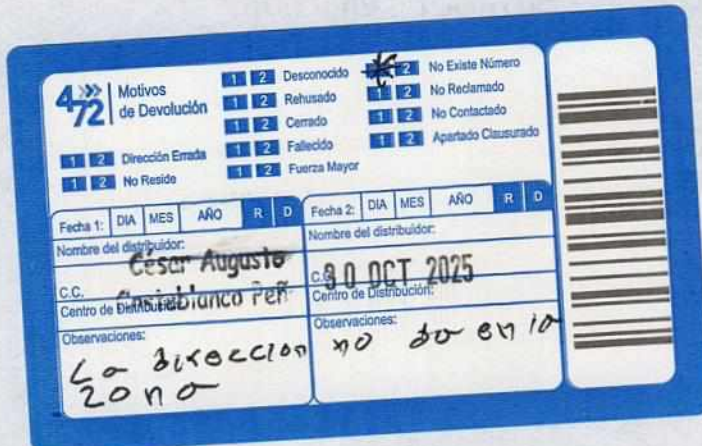 472
Motivos
de Devolución
1 2 Dirección Errada
1 2 No Reside
1 2 Desconocido
1 2 Rehusado
1 2 Cerrado
1 2 Fallecido
1 2 Fuerza Mayor
2 No Existe Número
1 2 No Reclamado
1 2 No Contactado
1 2 Apartado Clausurado
Fecha 1: DIA MES AÑO R D
Nombre del distribuidor:
César Augusto
C.C.
Centro de Distribución:
Observaciones:
La direccion
zona
Fecha 2: DIA MES AÑO R D
Nombre del distribuidor:
C.C.
30 OCT 2025
Centro de Distribución:
Observaciones:
no da en la